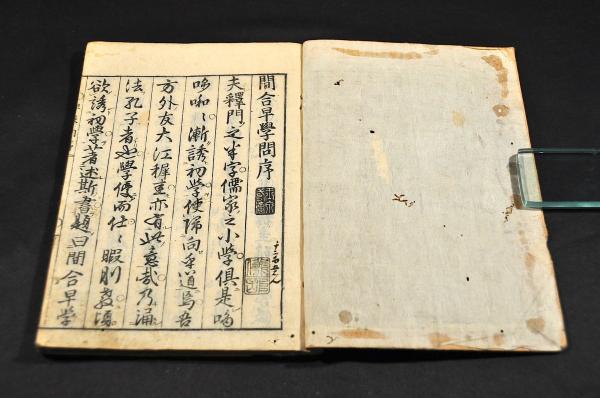 間合早學問序
夫釋門之半字儒家之小學俱是哆
哆啝啝漸誘初學使歸向乎道焉吾
方外友大江穉圭亦有此意哉乃誦
法孔子者也學優而仕仕暇則
欲誘初學著述斯書題曰間合早學